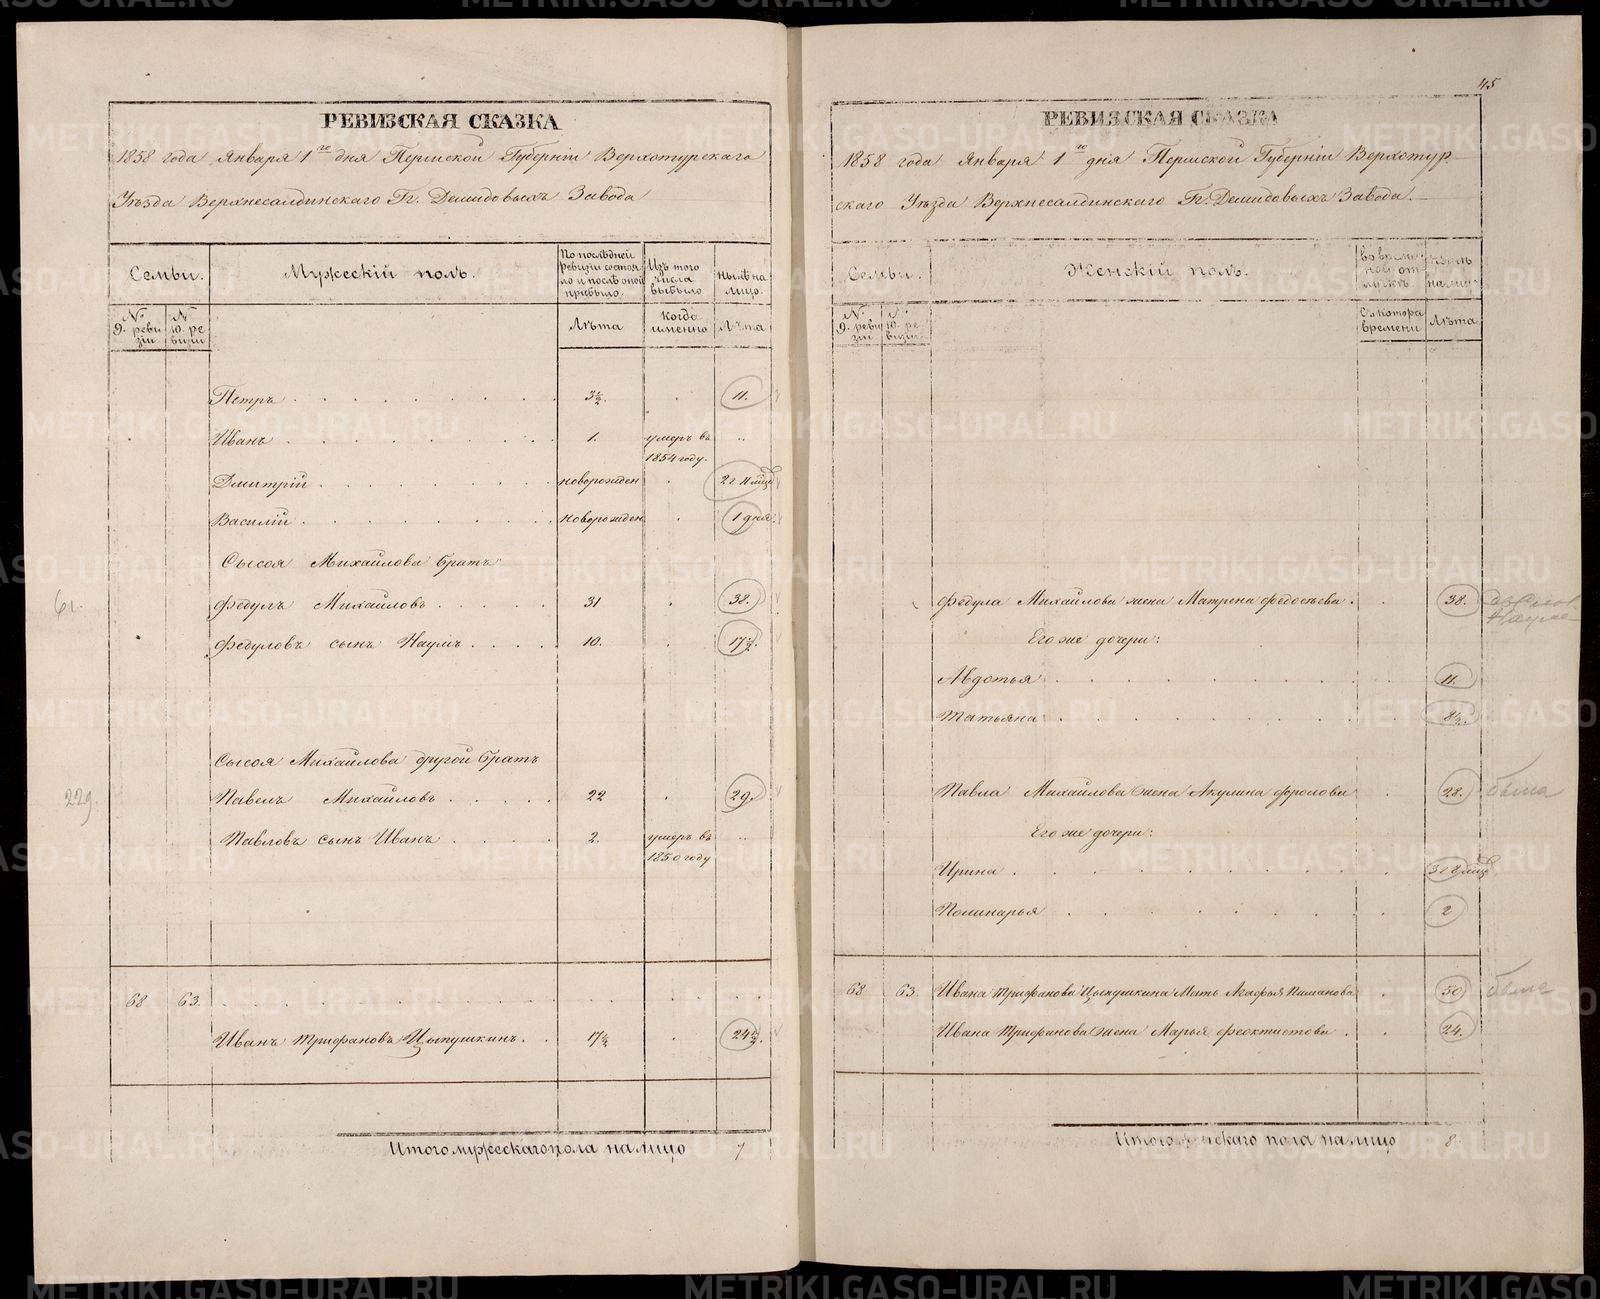 РЕВИЗСКАЯ СКАЗКА
1858 года Января 1го дня Пермской Губерніи Верхотурскаго
Уѣзда Верхнесалдинскаго Гг. Демидовыхъ Завода
Семьи.
Мужескій полъ.
По послѣдней ревизіи состояло и послѣ оной прибыло.
Изъ того числа выбыло
нынѣ на лицо.
№ 9. ревизіи
№ 10. ревизіи
Лѣта
Когда именно
Лѣта
Петръ 3½. 11.
Иванъ 1. умеръ въ 1854 году.
Дмитрій новорожден 2 г 11 мцѣ
Василій новорожден 1 дня.
Сысоя Михайлова братъ
61. Федулъ Михайловъ 31 38.
Федуловъ сынъ Наумъ 10. 17½.
Сысоя Михайлова другой братъ
229. Павелъ Михайловъ 22 29.
Павловъ сынъ Иванъ 2. умеръ въ 1850 году
68 63.
Иванъ Трифановъ Цыпушкинъ 17½ 24½.
Итого мужескаго пола на лицо 7
45
РЕВИЗСКАЯ СКАЗКА
1858 года Января 1го дня Пермской Губерніи Верхотур-
скаго Уѣзда Верхнесалдинскаго Гг. Демидовыхъ Завода.
Семьи.
Женскій полъ.
во времен. отлучкѣ.
нынѣ на лицо
№ 9. ревизіи
№ 10. ревизіи
Съ котора времени
Лѣта
Федула Михайлова жена Матрена Федосѣева 38.
Его же дочери:
Авдотья 11.
Татьяна 8½.
Павла Михайлова жена Акулина Фролова 28.
Его же дочери:
Ирина 3 г 8 мцѣ
Полинарья 2
68 63. Ивана Трифанова Цыпушкина Мать Агафья Пиманова 50
Ивана Трифанова жена Марья Феоктистова 24.
Итого женскаго пола на лицо 8.
METRIKI.GASO-URAL.RU